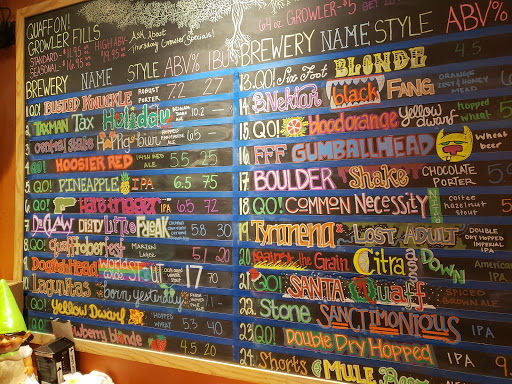 QUAFFON!
GROWLER FILLS
STANDARD - $11.95
SEASONAL - $16.95
HIGH ABV -
$19.95
Ask About
Thursday Growler Specials!
64 oz GROWLER - $5
BREWERY NAME STYLE ABV% IBU
1 QO! BUSTED KNUCKLE ROBUST PORTER 7.2 27
2 TAXMAN Tax Holiday 10.2 -
3 Central State 6.5 -
4 QO! HOOSIER RED IRISH RED ALE 5.5 25
5 QO! PINEAPPLE IPA 6.5 75
6 QO! Hare trigger IPA 6.5 72
7 DeCLAW DIRTY Little FREAK 5.8 30
8 QO! quafftoberfest MARZEN LAGER 5.1 20
9 Dogfish Head World Wide STOUT 17 70
10 Lagunitas born yesterday
QO! Yellow Dwarf HOPPED WHEAT 5.3 40
Strawberry blonde 4.5 20
BREWERY NAME STYLE ABV%
13. QO! Six Foot BLONDE 4.5
14 B. Nektar black FANG ORANGE ZEST & HONEY MEAD
15 QO! bloodorange yellow dwarf hopped wheat
16 FFF GUMBALLHEAD wheat beer
17 BOULDER Shake CHOCOLATE PORTER
18 QO! COMMON NECESSITY coffee hazelnut stout
19 Tyranena LOST ADULT DOUBLE DRY HOPPED IMPERIAL IPA
20 Against the Grain Citra Down American IPA
21 QO! SANTA Quaff SPICED BROWN ALE
22 Stone SANCTIMONIOUS IPA
23 QO! Double Dry Hopped IPA
24 Shorts MULE